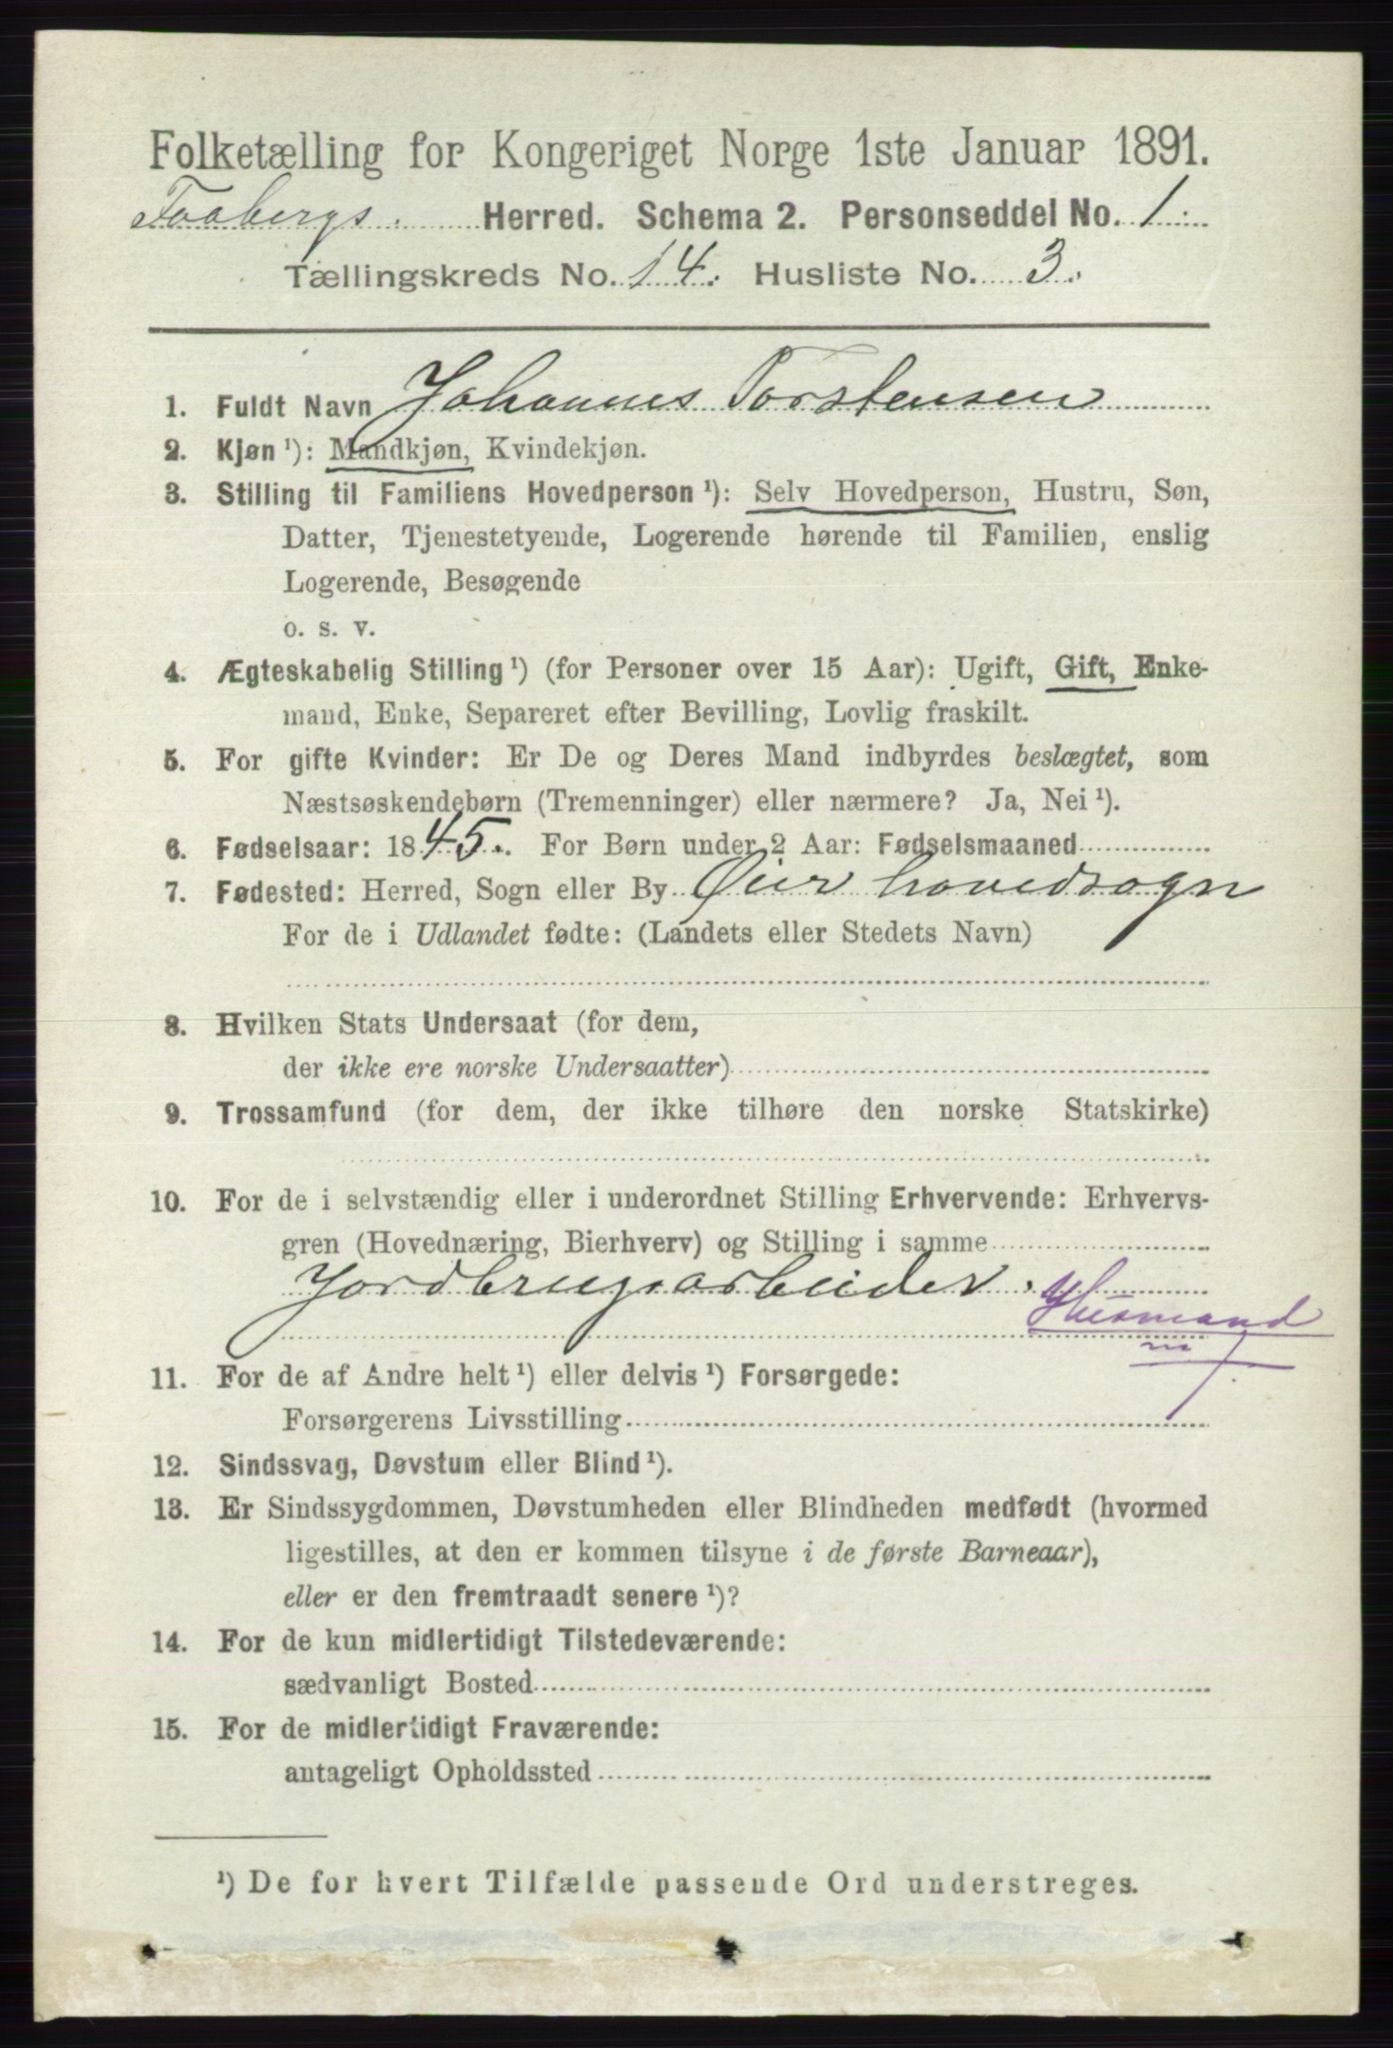 Folketælling for Kongeriget Norge 1ste Januar 1891.
Faabergs. Herred. Schema 2. Personseddel No. 1.
Tællingskreds No. 14. Husliste No. 3.
1. Fuldt Navn Johannes Torstensen
2. Kjøn ¹): Mandkjøn, Kvindekjøn.
3. Stilling til Familiens Hovedperson ¹): Selv Hovedperson, Hustru, Søn,
Datter, Tjenestetyende, Logerende hørende til Familien, enslig
Logerende, Besøgende
o. s. v.
4. Ægteskabelig Stilling ¹) (for Personer over 15 Aar): Ugift, Gift, Enke-
mand, Enke, Separeret efter Bevilling, Lovlig fraskilt.
5. For gifte Kvinder: Er De og Deres Mand indbyrdes beslægtet, som
Næstsøskendebørn (Tremenninger) eller nærmere? Ja, Nei ¹).
6. Fødselsaar: 1845. For Børn under 2 Aar: Fødselsmaaned
7. Fødested: Herred, Sogn eller By Øier hovedsogn
For de i Udlandet fødte: (Landets eller Stedets Navn)
8. Hvilken Stats Undersaat (for dem,
der ikke ere norske Undersaatter)
9. Trossamfund (for dem, der ikke tilhøre den norske Statskirke)
10. For de i selvstændig eller i underordnet Stilling Erhvervende: Erhvervs-
gren (Hovednæring, Bierhverv) og Stilling i samme
Jordbrugsarbeider. Husmand
m. J.
11. For de af Andre helt ¹) eller delvis ¹) Forsørgede:
Forsørgerens Livsstilling
12. Sindssvag, Døvstum eller Blind ¹).
13. Er Sindssygdommen, Døvstumheden eller Blindheden medfødt (hvormed
ligestilles, at den er kommen tilsyne i de første Barneaar),
eller er den fremtraadt senere ¹)?
14. For de kun midlertidigt Tilstedeværende:
sædvanligt Bosted
15. For de midlertidigt Fraværende:
antageligt Opholdssted
¹) De for hvert Tilfælde passende Ord understreges.